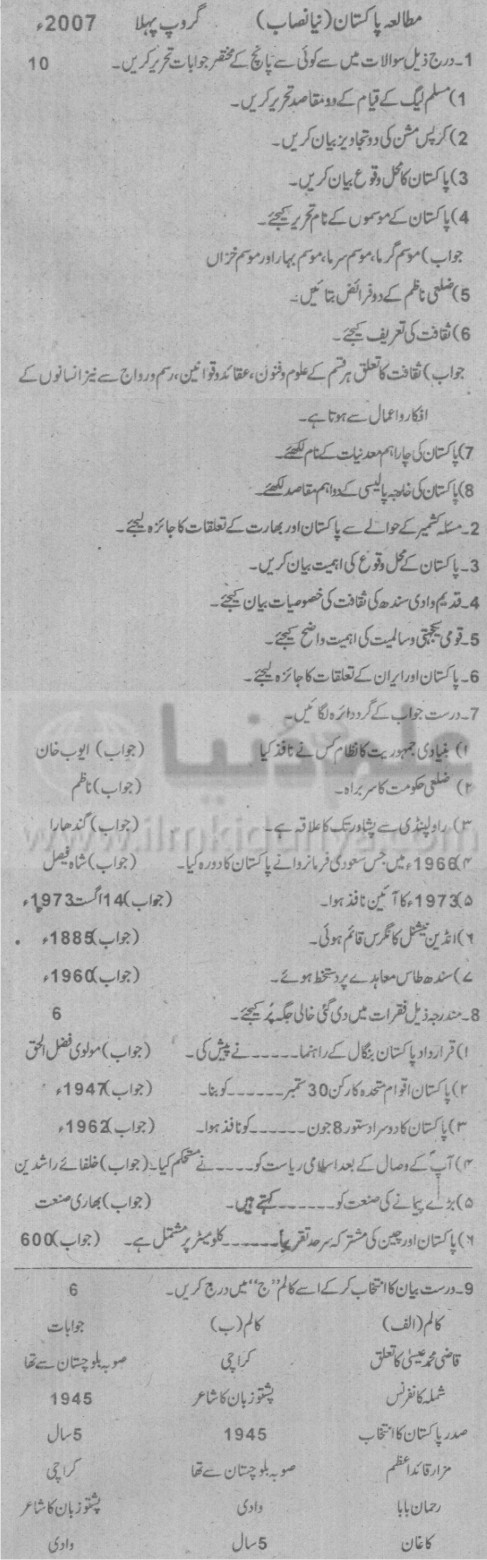 مطالعہ پاکستان (نیا نصاب) گروپ پہلا 2007ء
1۔ درج ذیل سوالات میں سے کوئی سے پانچ کے مختصر جوابات تحریر کریں۔ 10
1) مسلم لیگ کے قیام کے دو مقاصد تحریر کریں۔
2) کرپس مشن کی دو تجاویز بیان کریں۔
3) پاکستان کا محل وقوع بیان کریں۔
4) پاکستان کے موسموں کے نام تحریر کیجئے۔
جواب) موسم گرما، موسم سرما، موسم بہار اور موسم خزاں
5) ضلعی ناظم کے دو فرائض بتائیں۔
6) ثقافت کی تعریف کیجئے۔
جواب) ثقافت کا تعلق ہر قسم کے علوم و فنون، عقائد و قوانین، رسم و رواج سے نیز انسانوں کے
افکار و اعمال سے ہوتا ہے۔
7) پاکستان کی چار اہم معدنیات کے نام لکھئے۔
8) پاکستان کی خارجہ پالیسی کے دو اہم مقاصد لکھئے۔
2۔ مسئلہ کشمیر کے حوالے سے پاکستان اور بھارت کے تعلقات کا جائزہ لیجئے۔
3۔ پاکستان کے محل وقوع کی اہمیت بیان کریں۔
4۔ قدیم وادی سندھ کی ثقافت کی خصوصیات بیان کیجئے۔
5۔ قومی یکجہتی و سالمیت کی اہمیت واضح کیجئے۔
6۔ پاکستان اور ایران کے تعلقات کا جائزہ لیجئے۔
7۔ درست جواب کے گرد دائرہ لگائیں۔
علم کی دنیا
www.ilmkidunya.com
۱) بنیادی جمہوریت کا نظام کس نے نافذ کیا (جواب) ایوب خان
۲) ضلعی حکومت کا سربراہ۔ (جواب) ناظم
۳) راولپنڈی سے پشاور تک کا علاقہ ہے۔ (جواب) گندھارا
۴) 1966ء میں جس سعودی فرمانروا نے پاکستان کا دورہ کیا۔ (جواب) شاہ فیصل
۵) 1973ء کا آئین نافذ ہوا۔ (جواب) 14 اگست 1973ء
۶) انڈین نیشنل کانگرس قائم ہوئی۔ (جواب) 1885ء
۷) سندھ طاس معاہدے پر دستخط ہوئے۔ (جواب) 1960ء
8۔ مندرجہ ذیل فقرات میں دی گئی خالی جگہ پُر کیجئے۔ 6
۱) قرارداد پاکستان بنگال کے راہنما ۔۔۔۔۔ نے پیش کی۔ (جواب) مولوی فضل الحق
۲) پاکستان اقوام متحدہ کا رکن 30 ستمبر ۔۔۔۔۔ کو بنا۔ (جواب) 1947ء
۳) پاکستان کا دوسرا دستور 8 جون ۔۔۔۔۔ کو نافذ ہوا۔ (جواب) 1962ء
۴) آپؐ کے وصال کے بعد اسلامی ریاست کو ۔۔۔۔ نے مستحکم کیا۔ (جواب) خلفائے راشدین
۵) بڑے پیمانے کی صنعت کو ۔۔۔۔۔ کہتے ہیں۔ (جواب) بھاری صنعت
۶) پاکستان اور چین کی مشترکہ سرحد تقریباً ۔۔۔۔۔ کلومیٹر پر مشتمل ہے۔ (جواب) 600
9۔ درست بیان کا انتخاب کر کے اسے کالم "ج" میں درج کریں۔ 6
کالم (الف) کالم (ب) جوابات
قاضی محمد عیسیٰ کا تعلق کراچی صوبہ بلوچستان سے تھا
شملہ کانفرنس پشتو زبان کا شاعر 1945
صدر پاکستان کا انتخاب 1945 5 سال
مزار قائد اعظم صوبہ بلوچستان سے تھا کراچی
رحمان بابا وادی پشتو زبان کا شاعر
کاغان 5 سال وادی